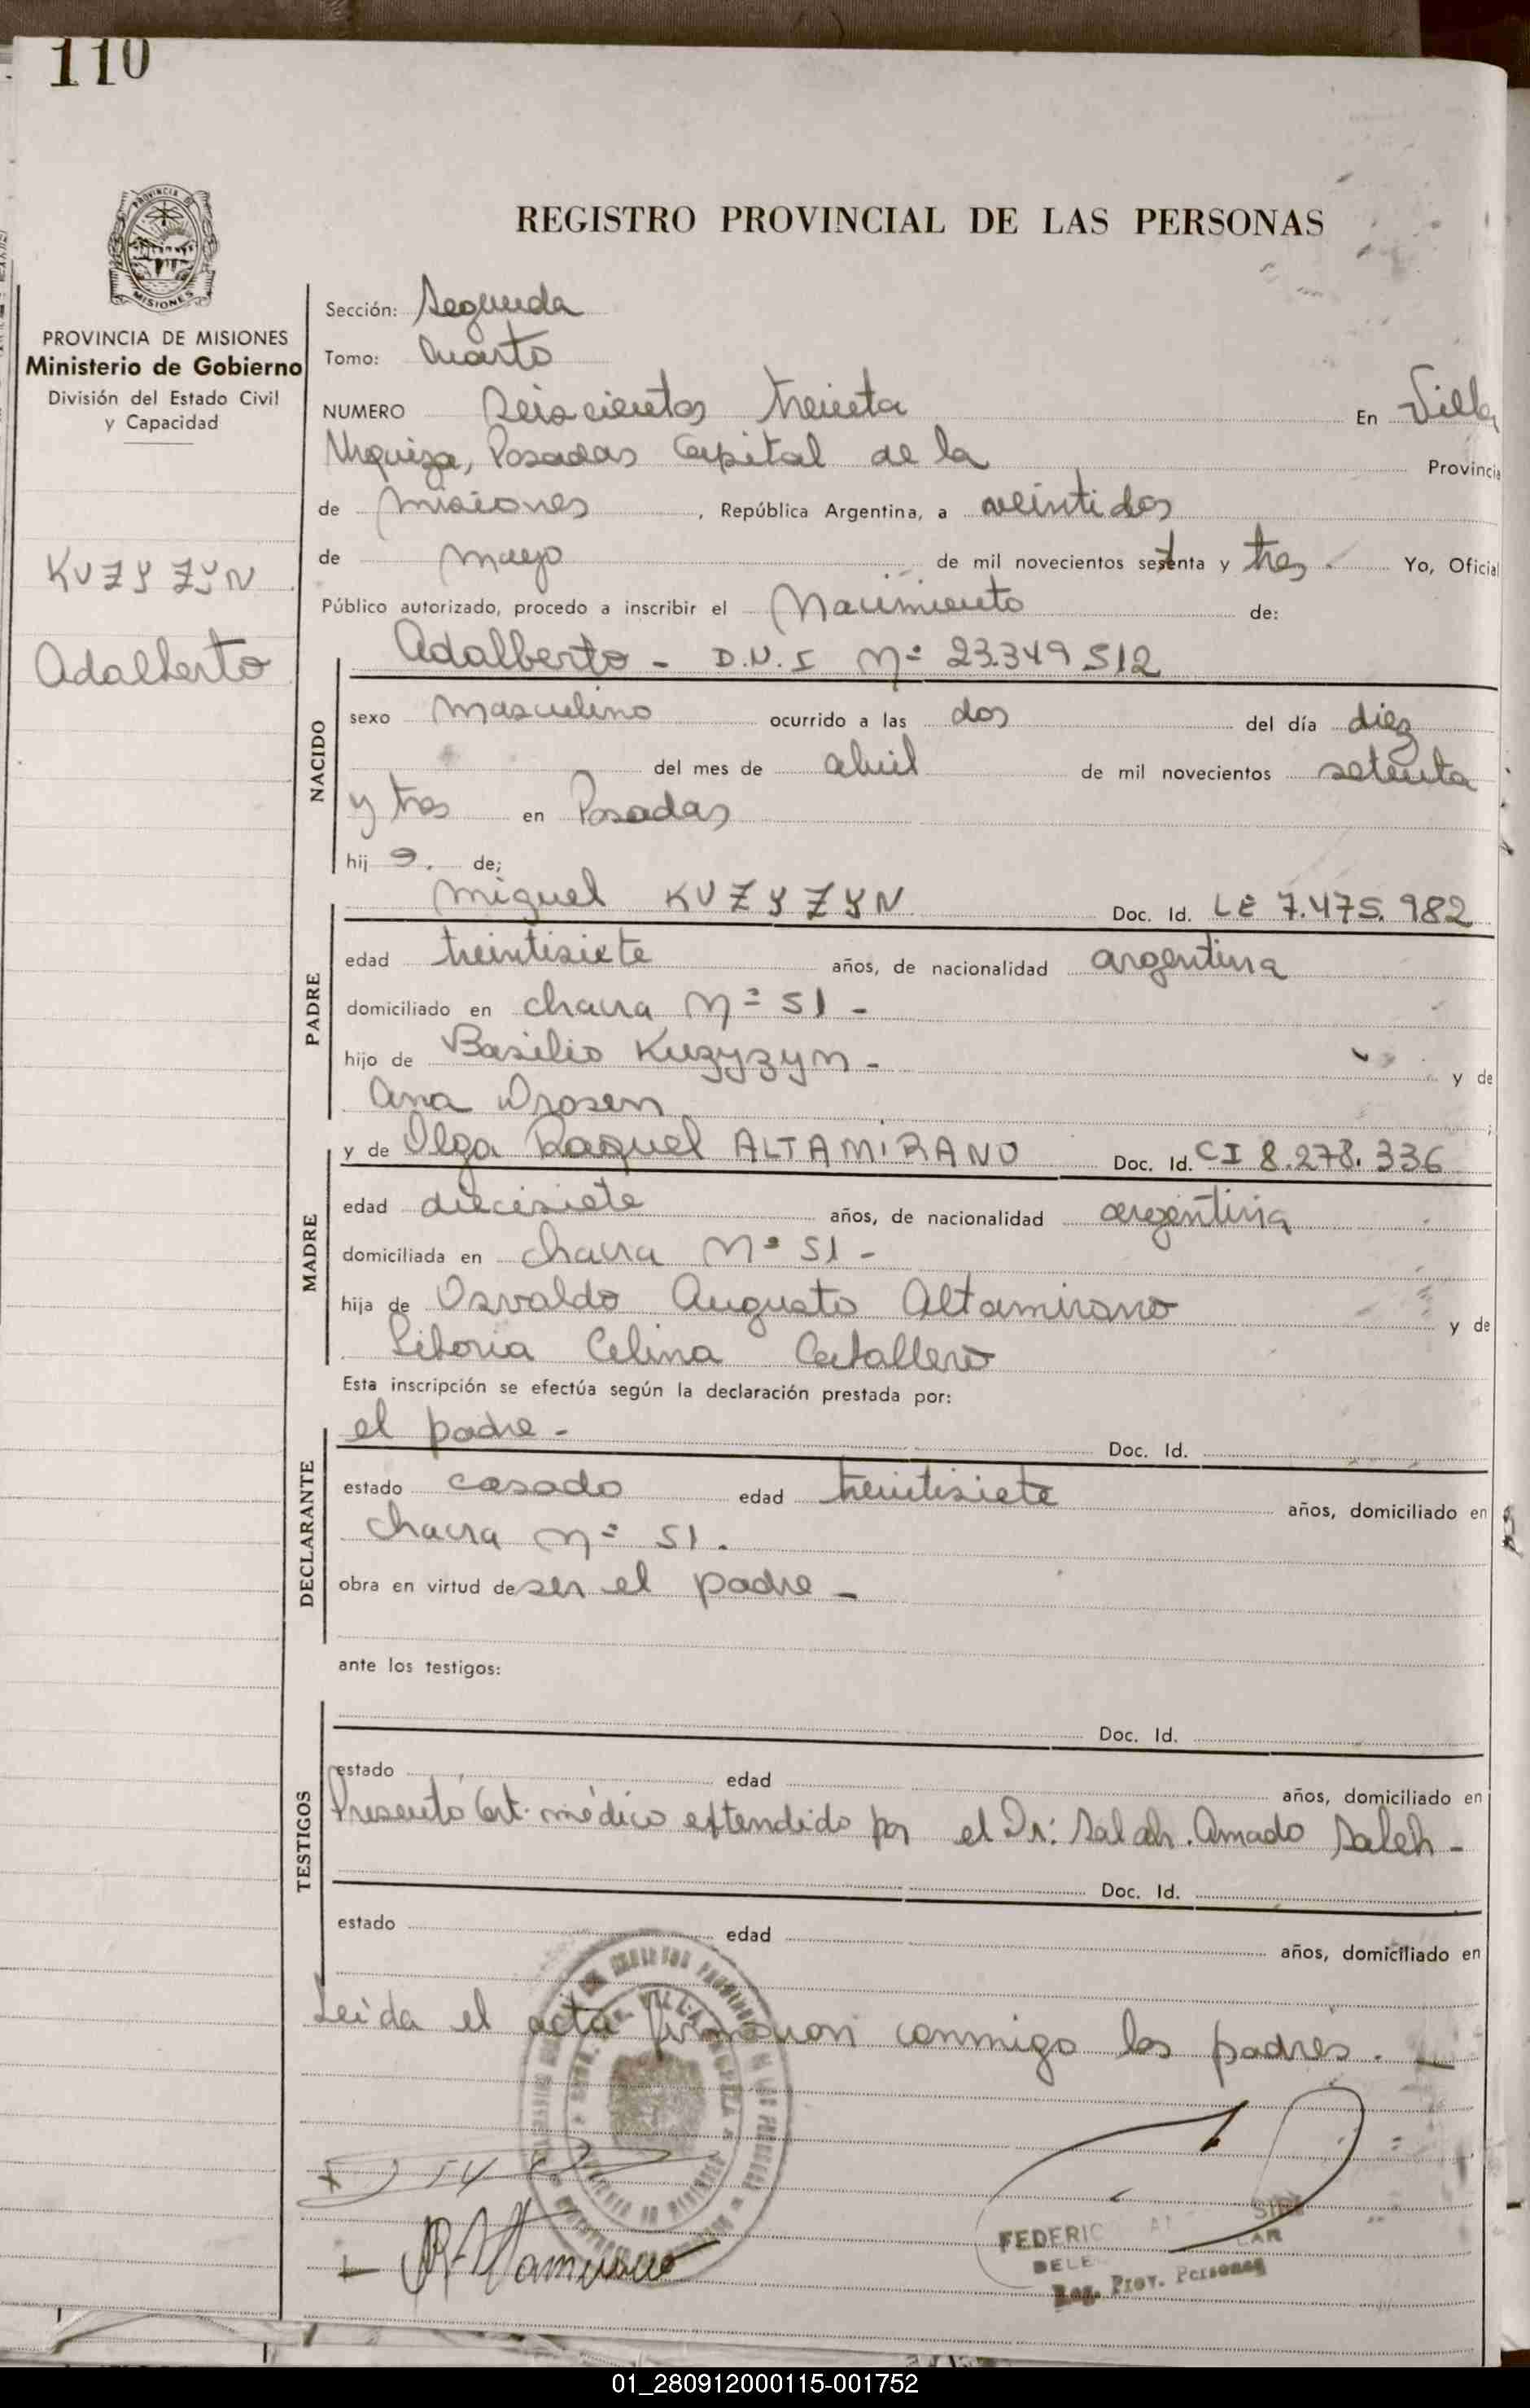 110
REGISTRO PROVINCIAL DE LAS PERSONAS
MISIONES
PROVINCIA DE MISIONES
Ministerio de Gobierno
División del Estado Civil
y Capacidad
KUZYZYN
Adalberto
Sección: Segunda
Tomo: Cuarto
NUMERO Seiscientos treinta En Villa
Urquiza, Posadas Capital de la Provincia
de Misiones, República Argentina, a veintidos
de mayo de mil novecientos setenta y tres. Yo, Oficial
Público autorizado, procedo a inscribir el Nacimiento de:
Adalberto - D.N.I Nº 23.349.512
NACIDO
sexo masculino ocurrido a las dos del día diez
del mes de abril de mil novecientos setenta
y tres en Posadas
hij o. de;
Miguel KUZYZYN Doc. Id. LE 7.475.982
PADRE
edad treintisiete años, de nacionalidad argentina
domiciliado en chacra Nº 51 -
hijo de Basilio Kuzyzyn - y de
Ana Drosen
y de Olga Raquel ALTAMIRANO Doc. Id. CI 8.278.336
MADRE
edad diecisiete años, de nacionalidad argentina
domiciliada en chacra Nº 51 -
hija de Osvaldo Augusto Altamirano y de
Liboria Celina Caballero
Esta inscripción se efectúa según la declaración prestada por:
el padre - Doc. Id.
DECLARANTE
estado casado edad treintisiete años, domiciliado en
chacra Nº 51.
obra en virtud de ser el padre -
ante los testigos:
Doc. Id.
TESTIGOS
estado edad años, domiciliado en
Presentó Cert. médico extendido por el Dr: Salah. Amado Saleh -
Doc. Id.
estado edad años, domiciliado en
Leída el acta firmaron conmigo los padres. -
FEDERIC
DELE
Reg. Prov. Personas
01_280912000115-001752